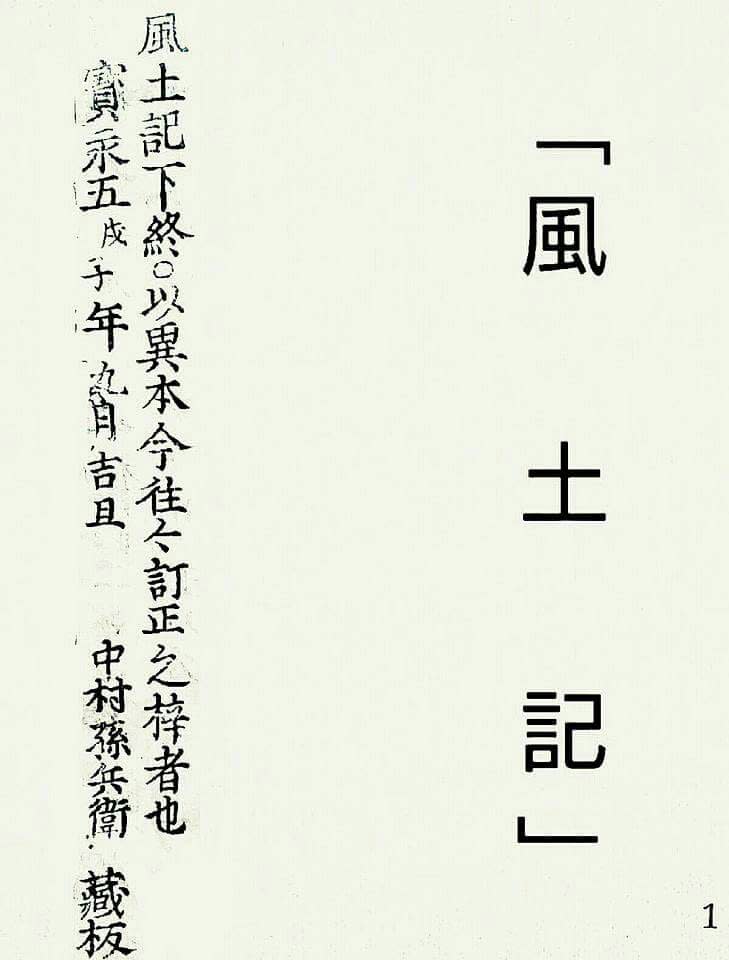 「風土記」
風土記下終○以異本今往々訂正之梓者也
寳永五戊子年九月吉旦 中村孫兵衛 藏板
1